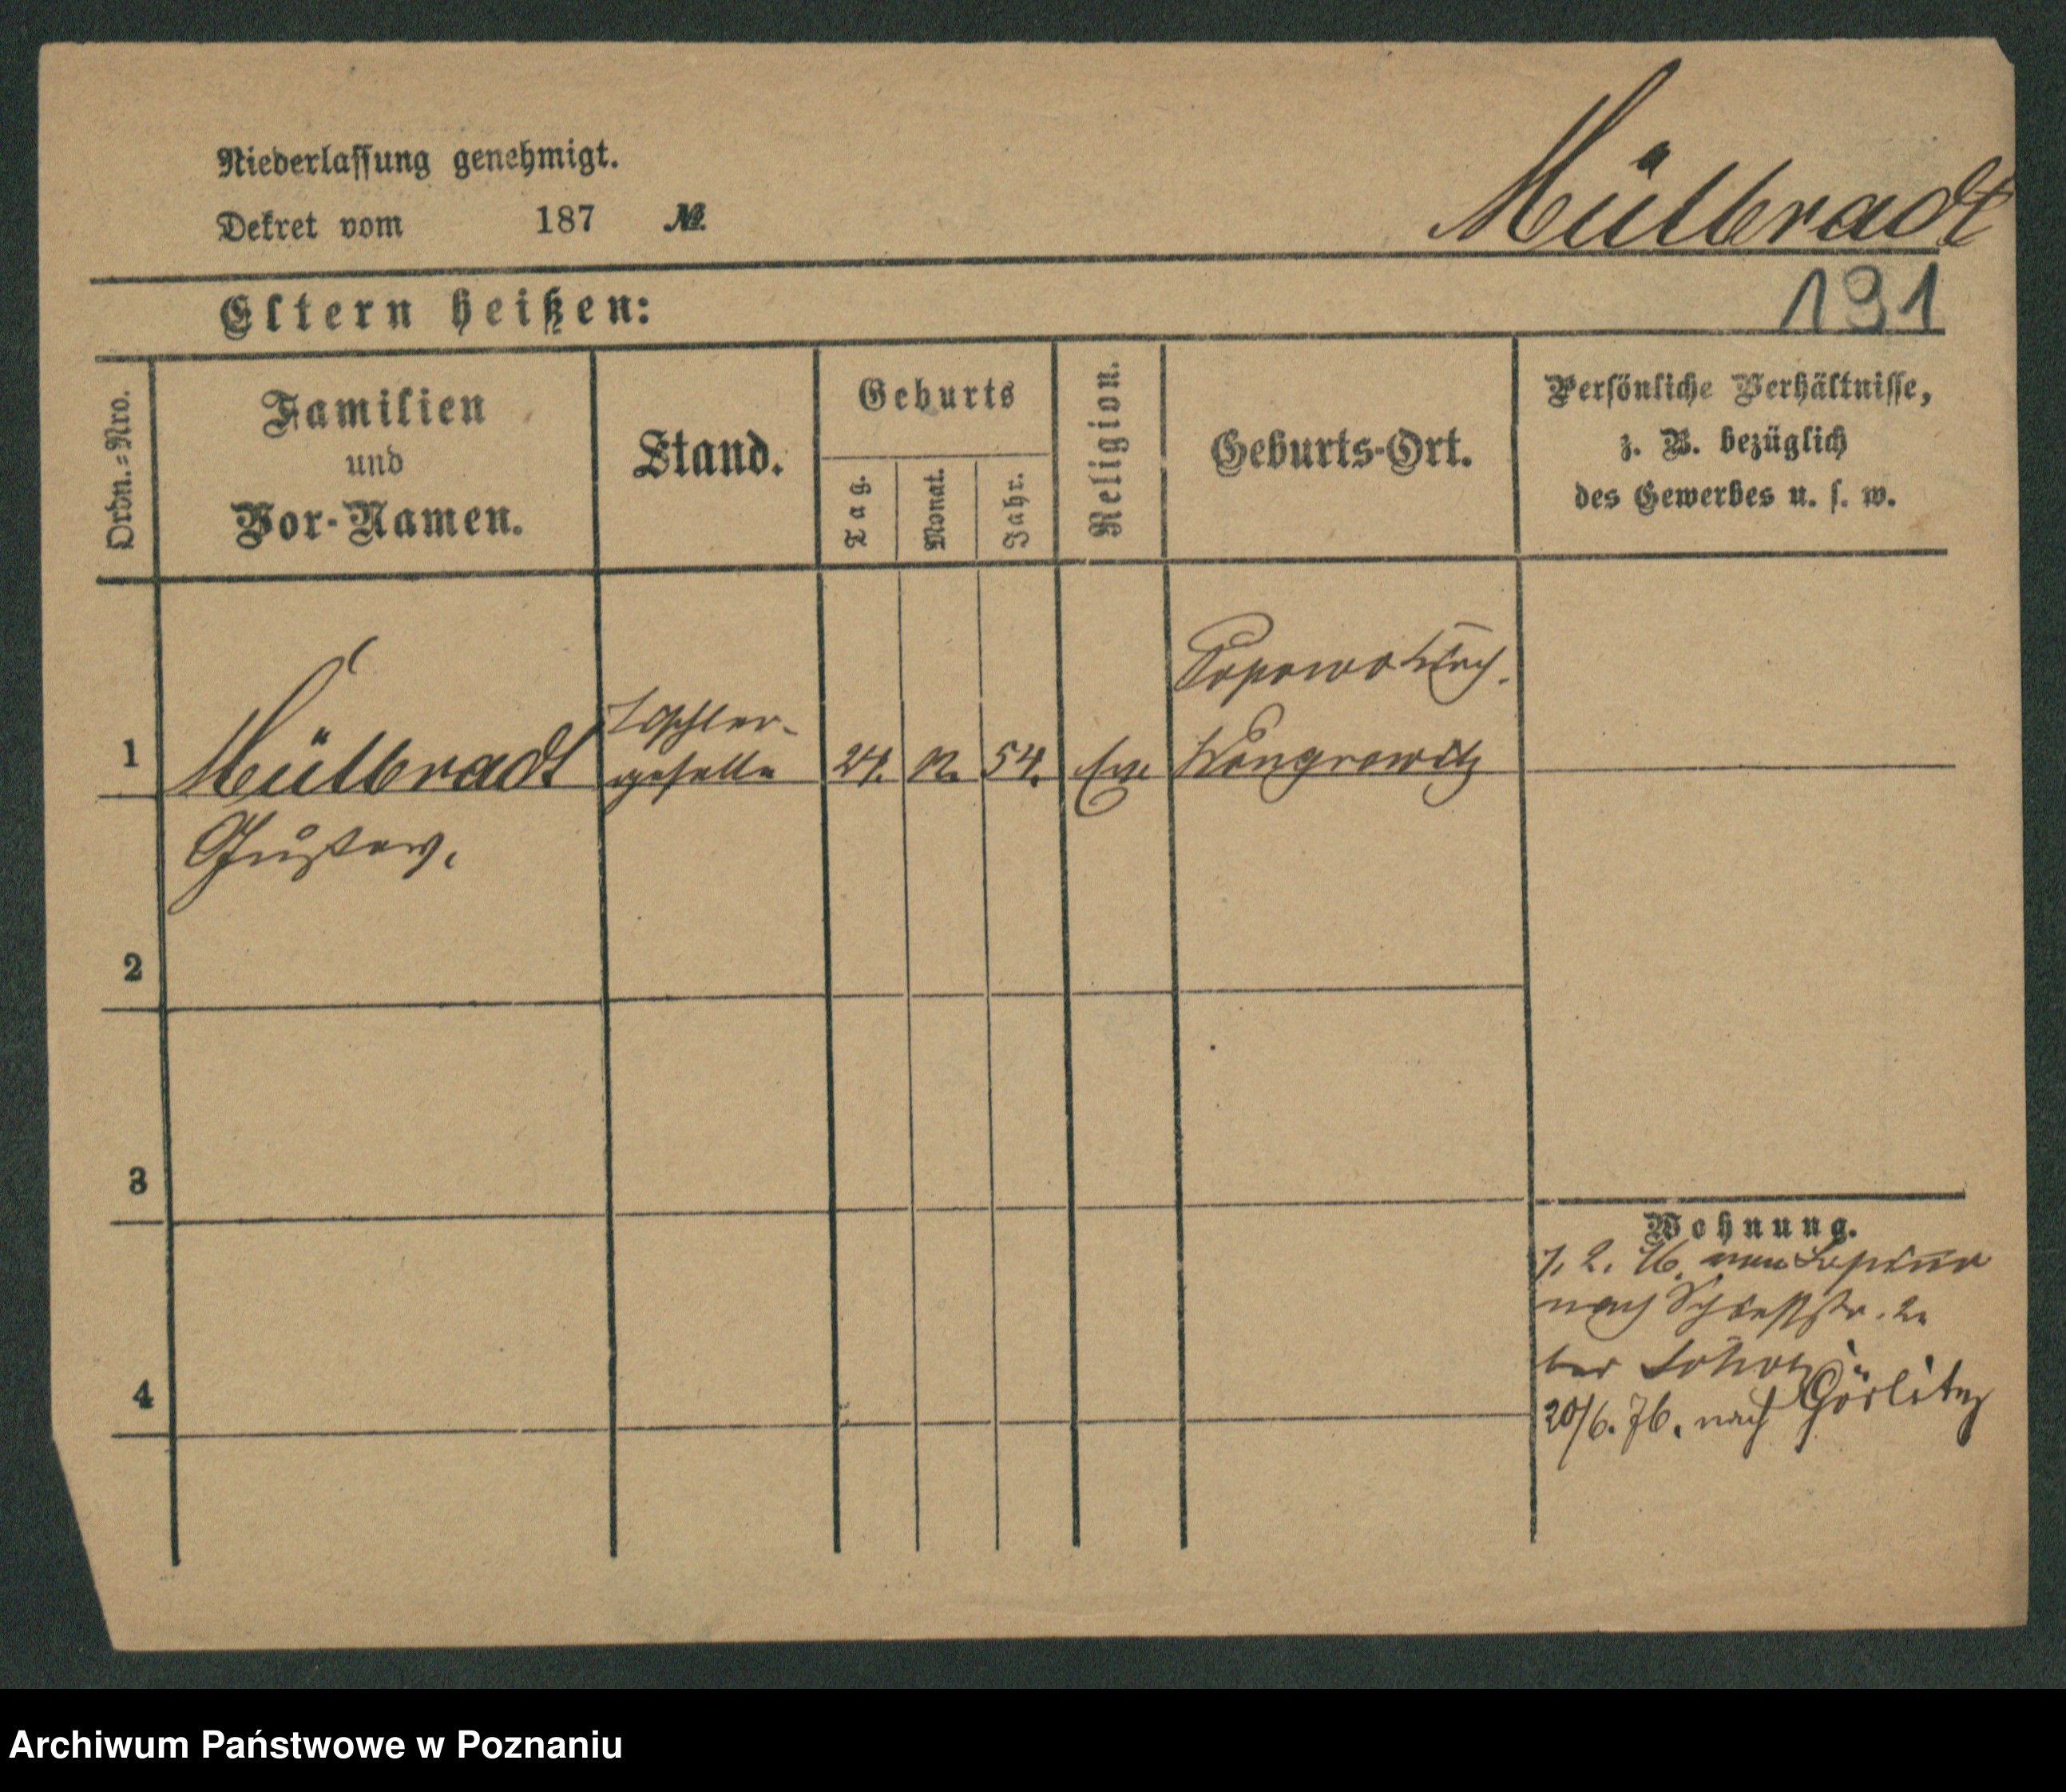 Niederlassung genehmigt.
Dekret vom 187 №.
Mülbradt
Eltern heißen:
191
Ordn.=Nro.
Familien
und
Vor-Namen.
Stand.
Geburts
Tag.
Monat.
Jahr.
Religion.
Geburts-Ort.
Persönliche Verhältnisse,
z. B. bezüglich
des Gewerbes u. s. w.
1
Mülbradt
Gustav.
Tischler-
geselle
24.
54.
Ev
Popowo
Wongrowitz
2
3
4
Wohnung.
7. 2. 76. von
nach
bei
20/6. 76. nach Görlitz
Archiwum Państwowe w Poznaniu